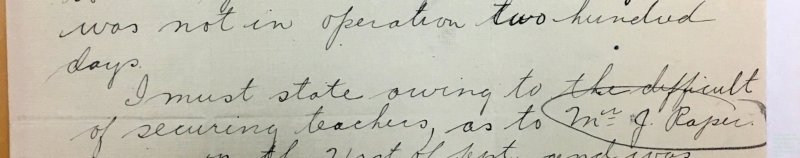 was not in operation two hundred
days.
I must state owing to the difficult
of securing teachers, as to Mr. J. Raper.
on the 21st of Sept. and was